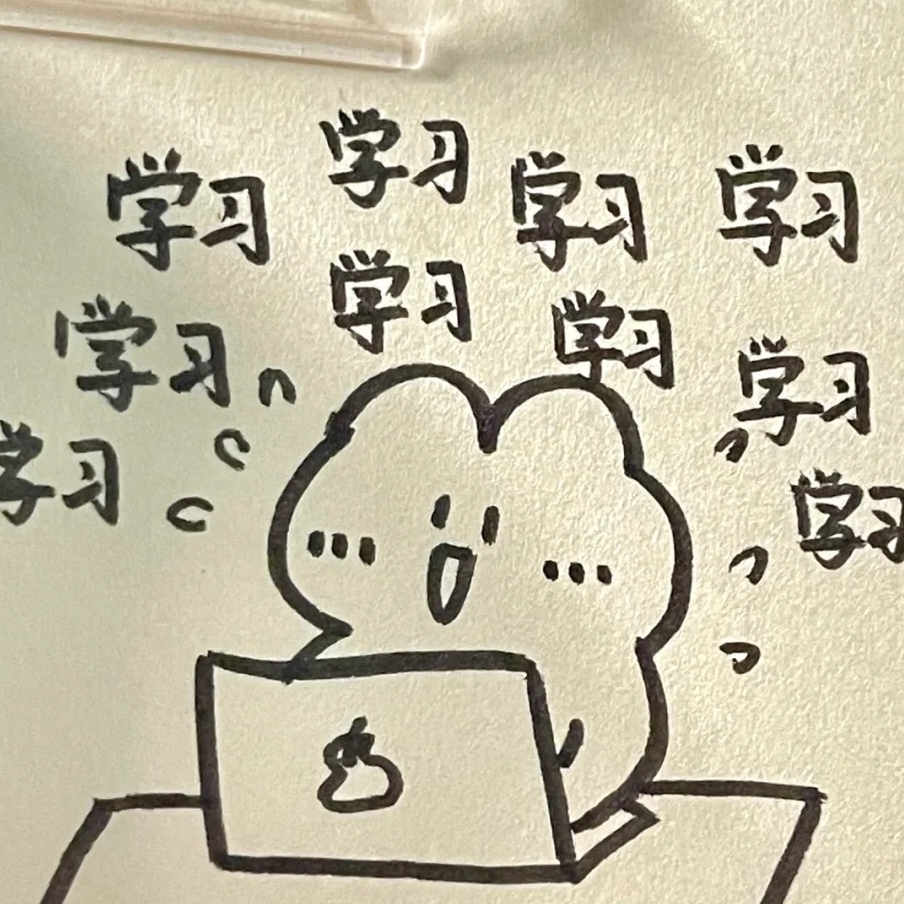 学习
学习
学习
学习
学习
学习
学习
学习
学习
学习